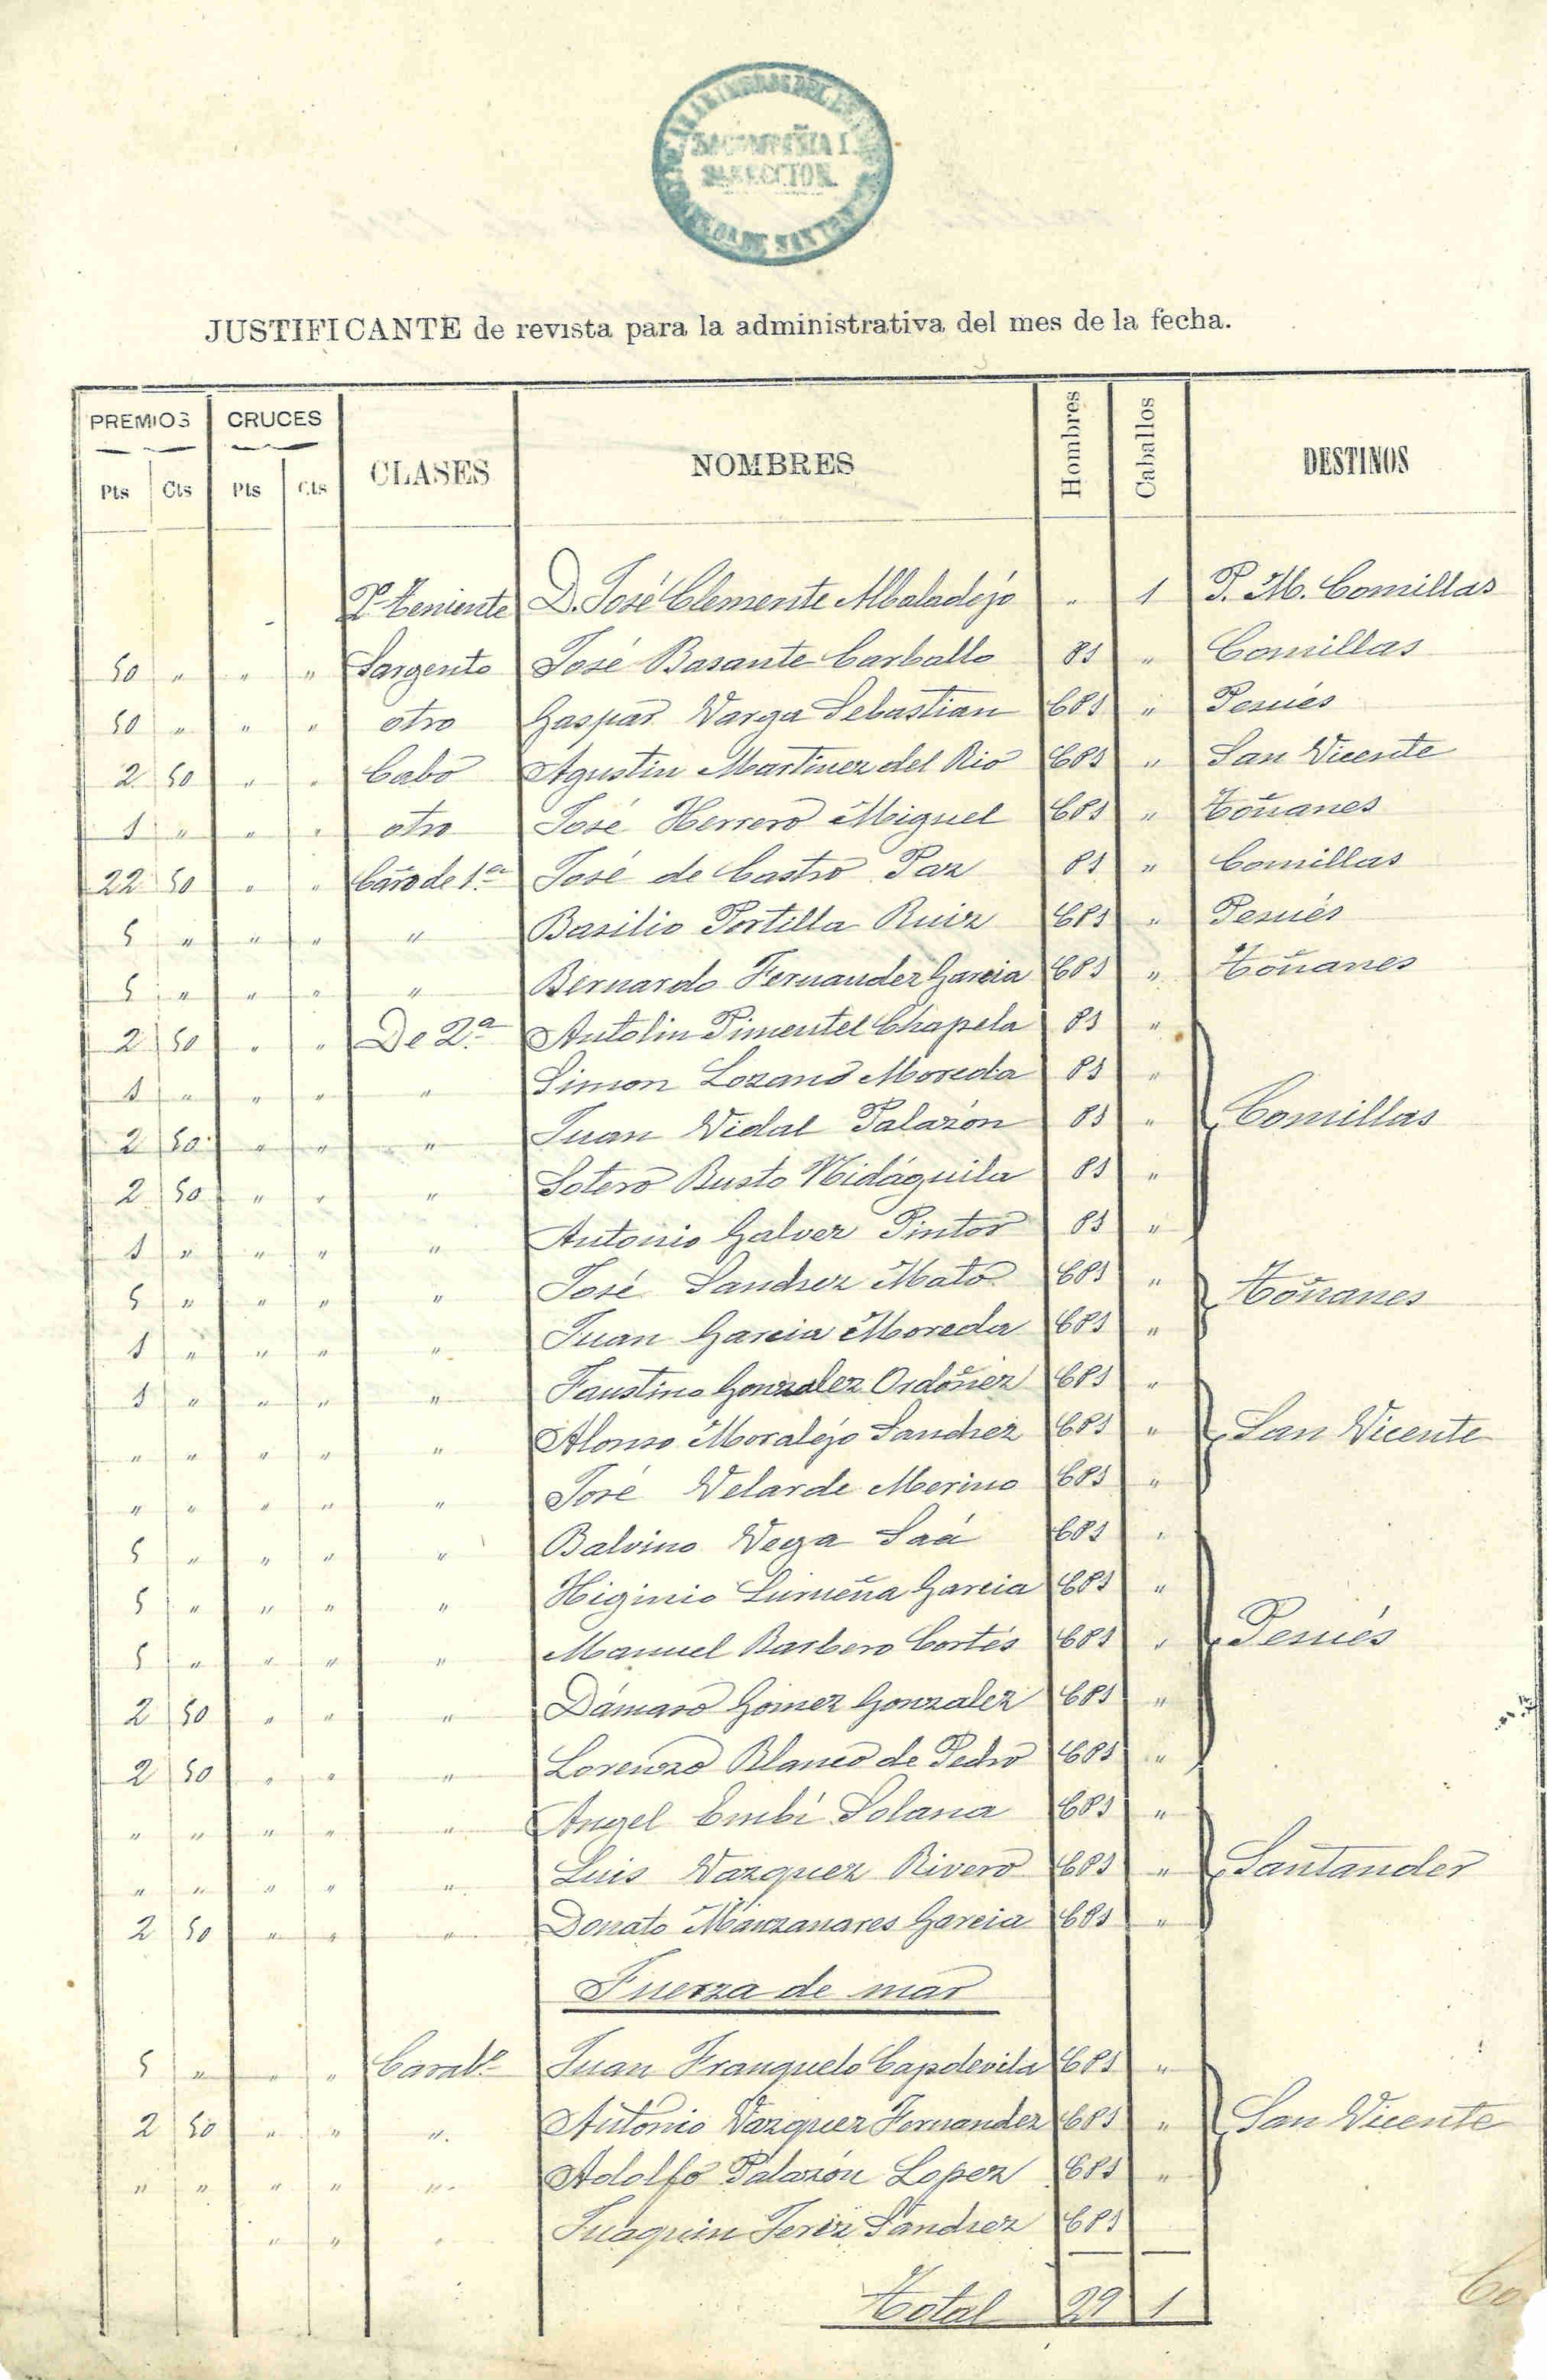 COMPAÑIA
SECCION
JUSTIFICANTE de revista para la administrativa del mes de la fecha.
PREMIOS CRUCES CLASES NOMBRES Hombres Caballos DESTINOS
Pts Cts Pts Cts
2º Teniente D. José Clemente Albaladéjo " 1 P. M. Comillas
50 " " " Sargento José Basante Carballo P1 " Comillas
50 " " " otro Gaspar Varga Sebastian CP1 " Pesués
2 50 " " Cabo Agustin Martinez del Rio CP1 " San Vicente
1 " " " otro José Herrero Miguel CP1 " Toñanes
22 50 " " Caro de 1.ª José de Castro Paz P1 " Comillas
5 " " " " Basilio Portilla Ruiz CP1 " Pesués
5 " " " " Bernardo Fernandez Garcia CP1 " Toñanes
2 50 " " De 2.ª Antolin Pimentel Chapela P1 "
1 " " " " Simon Lozano Moreda P1 "
2 50 " " " Juan Vidal Palazón P1 " Comillas
2 50 " " " Sotero Busto Nidáguila P1 "
1 " " " " Antonio Galvez Pintor P1 "
5 " " " " José Sanchez Mato CP1 " Toñanes
1 " " " " Juan Garcia Moreda CP1 "
1 " " " " Faustino Gonzalez Ordoñez CP1 "
" " " " " Alonso Moralejo Sanchez CP1 " San Vicente
" " " " " José Velarde Merino CP1 "
5 " " " " Balvino Vega Saá CP1 "
5 " " " " Higinio Lumeña Garcia CP1 "
5 " " " " Manuel Barbero Cortés CP1 " Pesués
2 50 " " " Dámaso Gomez Gonzalez CP1 "
2 50 " " " Lorenzo Blanco de Pedro CP1 "
" " " " " Angel Embí Solana CP1 "
" " " " " Luis Vazquez Rivero CP1 " Santander
2 50 " " " Donato Manzanares Garcia CP1 "
Fuerza de mar
5 " " " Carab.º Juan Franquelo Capdevila CP1 "
2 50 " " " Antonio Vazquez Fernandez CP1 " San Vicente
" " " " " Adolfo Palazón Lopez CP1 "
" " " Juaquin Jeréz Sanchez CP1
Total 29 1